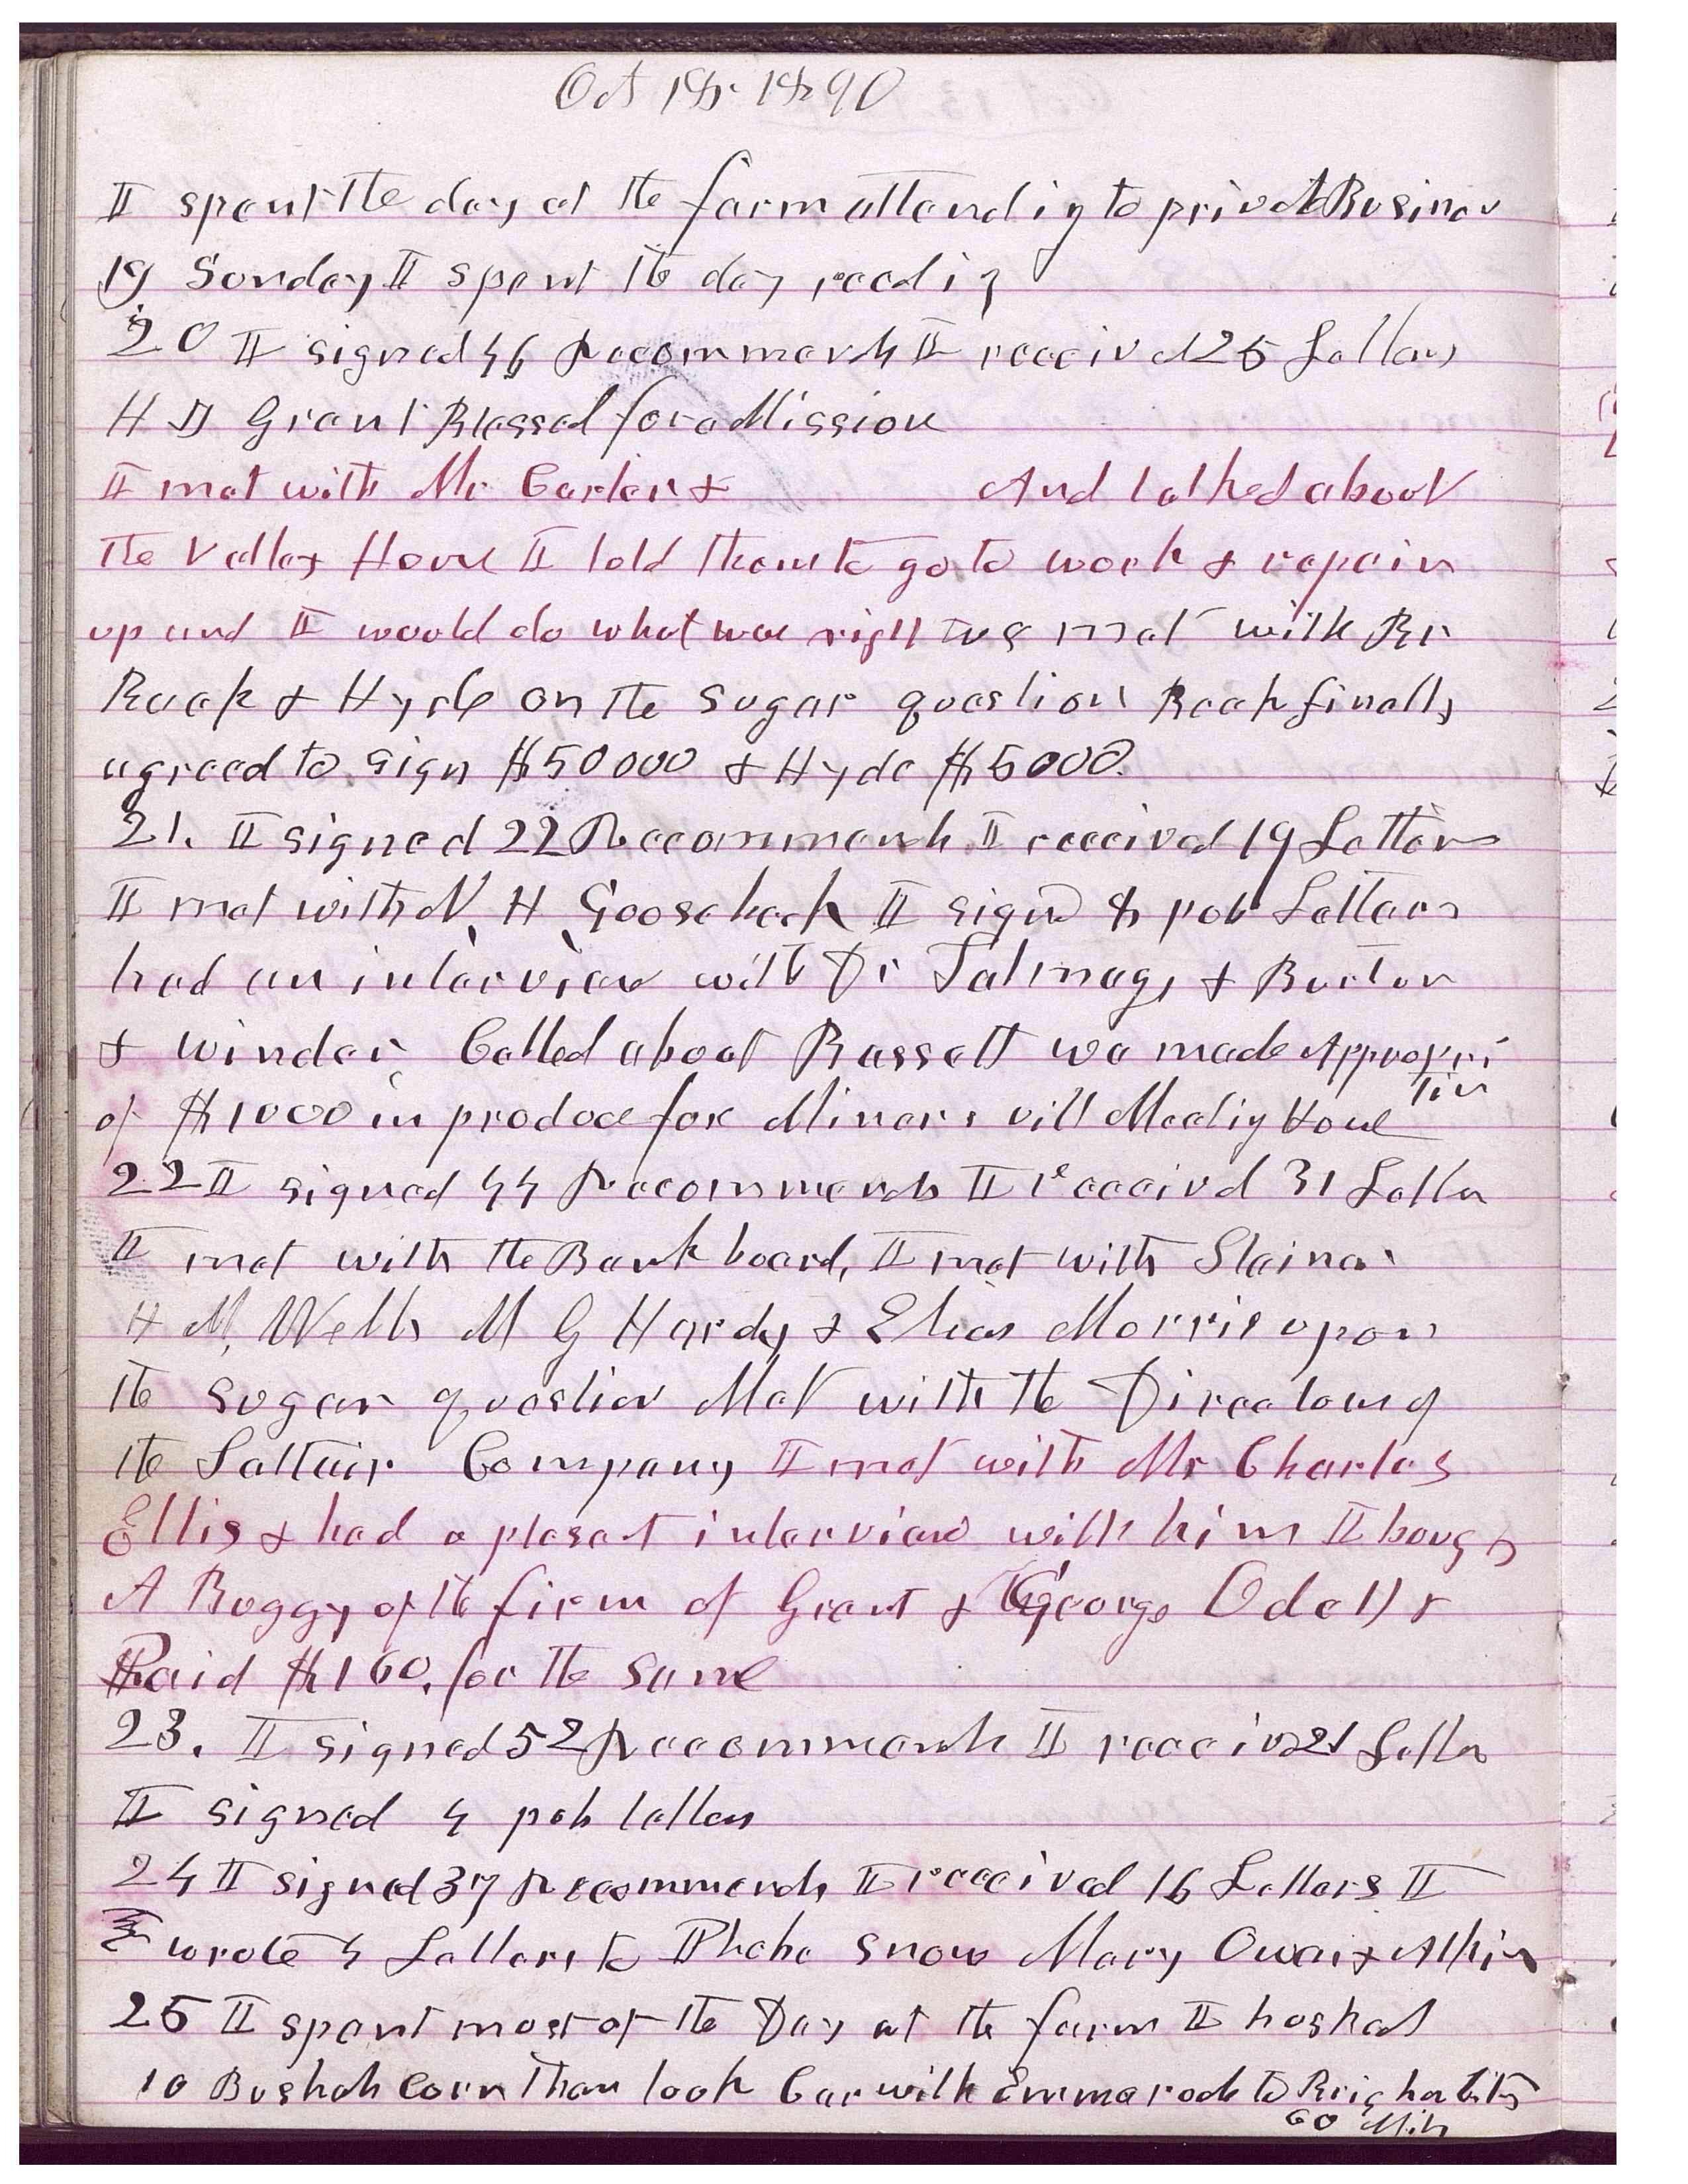 Oct 18. 1890
I spent the day at the farm attending to privat Business
19 Sunday I spent the day reading
20 I signed 46 Recommends I received 25 Letters
H D Grant Blessed for a Mission
I met with Mr Carter & And talked about
the Valley House I told them to go to work & repair
up and I would do what was right we met with Br
Rack & Hyde on the sugar question Rack finally
agreed to sign $50000 & Hyde $5000.
21. I signed 22 Recommends I received 19 Letters
I met with N. H. I signed 8 pub Letters
had an interview with Dr Talmage & Burton
& Winder, Called about Bassett we made Appropri
tion
of $1000 in produce for Minersvill Meeting House
22 I signed 44 Recommends I received 31 Letters
I met with the Bank board, I met with Stainer
H M, Wells M G Hardy & Elias Morris upon
the sugar question Met with the Directors of
the Saltair Company I met with Mr Charles
Ellis & had a plesant interview with him I bought
A Buggy of the firm of Grant & George Odell &
Paid $160. for the same
23. I signed 52 Recommends I received 21 Letters
I signed 4 pub letters
24 I signed 37 Recommends I received 16 Letters I
wrote 4 Letters to Phebe Snow Mary Owen &
25 I spent most of the Day at the farm I husked
10 Bushels Corn then took Car with Emma rode to Brigham City
60 Mils